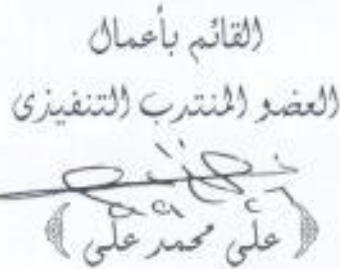 القائم بأعمال
العضو المنتدب التنفيذى
﴿ على محمد على ﴾